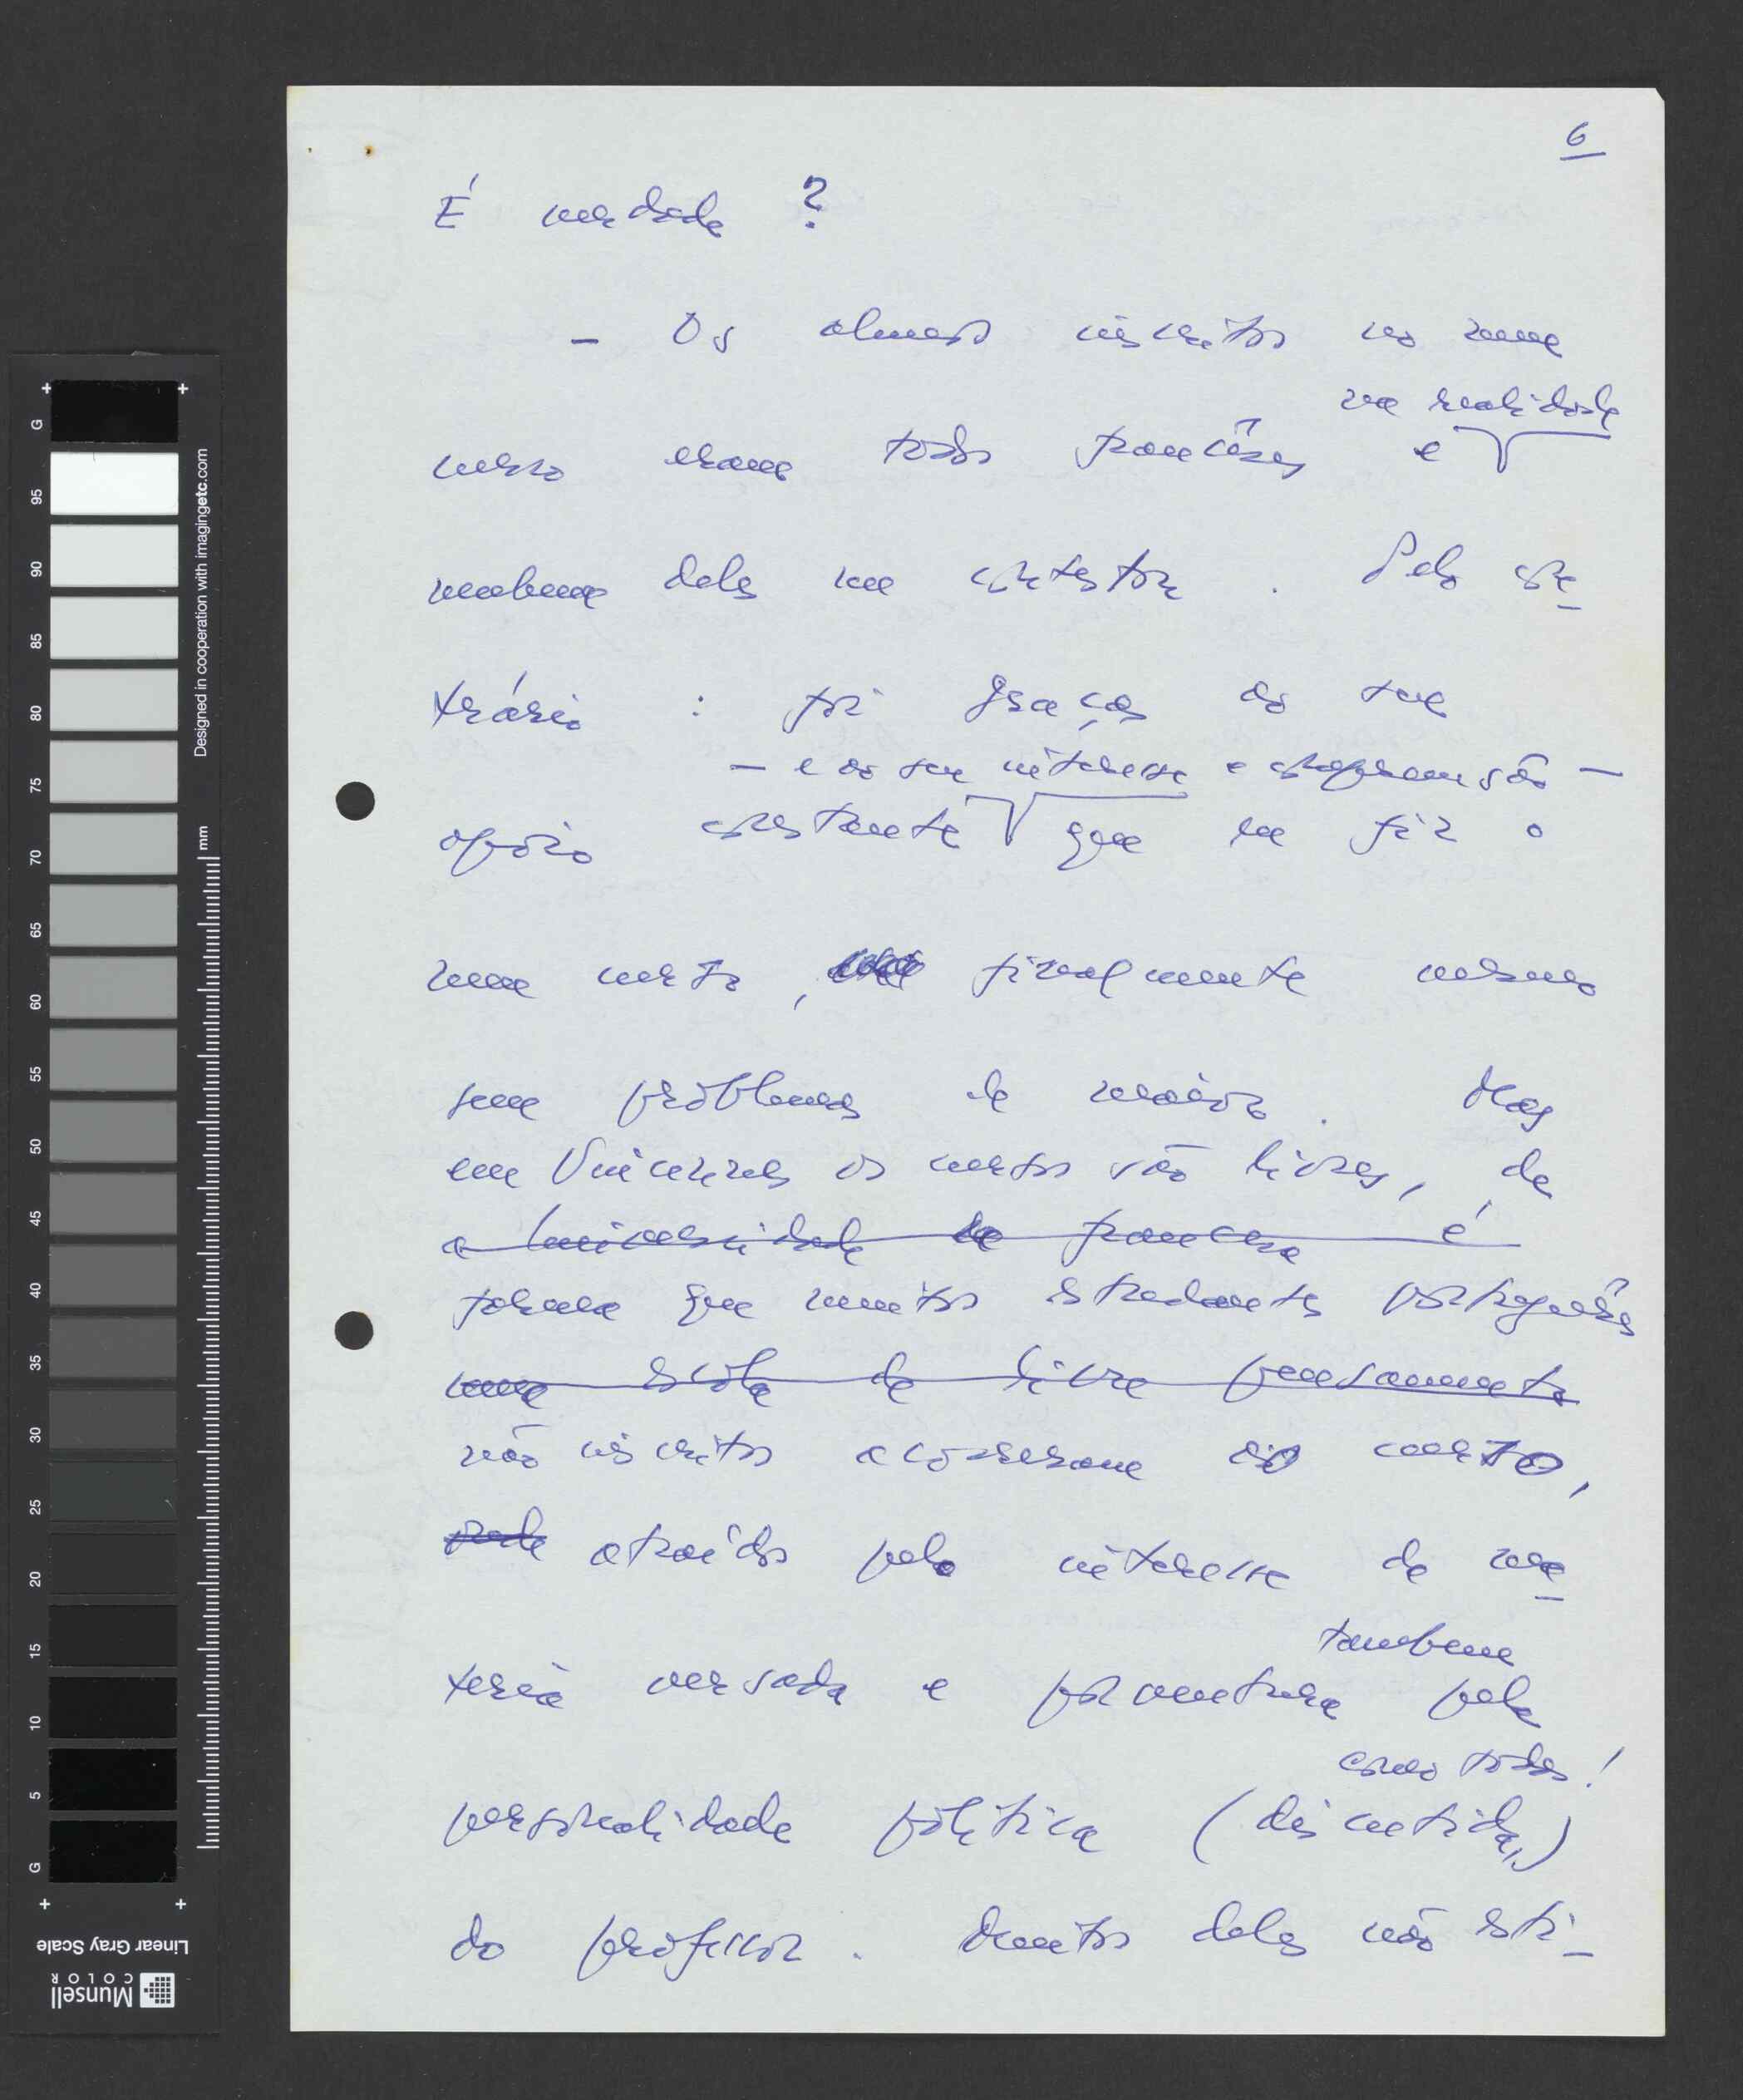 6
É verdade?
— Os alunos inscritos no meu
na realidade
curso eram todos franceses e
nenhum deles me contestou. Pelo con-
trário: foi graças ao seu
— e ao seu interesse e compreensão —
apoio constante que eu fiz o
meu curso, finalmente mesmo
sem problemas de maior. Mas
em Vincennes os cursos são livres, de
a Universidade francesa é
forma que muitos estudantes portugueses
uma escola de livre pensamento
não inscritos acorreram ao curso,
atraídos pelo interesse da ma-
também
téria versada e porventura pela
como todas!
personalidade política (discutida,)
do professor. Muitos deles não esti-
G 95 90 85 80 75 70 65 60 55 50 45 40 35 30 25 20 15 10 5 G
Designed in cooperation with imagingetc.com
mm
Linear Gray Scale
Munsell
COLOR